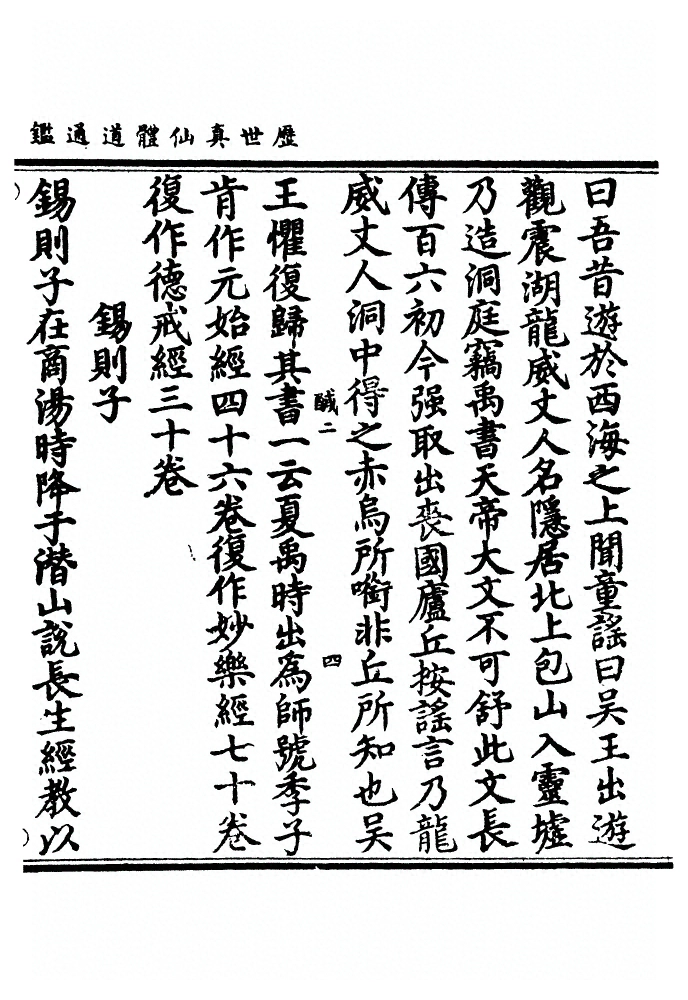 歷世真仙體道通鑑
曰吾昔遊於西海之上聞童謡曰吴王出遊
觀震湖龍威丈人名隱居北上包山入靈墟
乃造洞庭竊禹書天帝大文不可舒此文長
傳百六初今强取出喪國廬丘按謡言乃龍
威丈人洞中得之赤烏所㘅非丘所知也吴
王懼復歸其書一云夏禹時出為師號李子
肯作元始經四十六卷復作妙樂經七十卷
復作德戒經三十卷
錫則子
錫則子在商湯時降于潛山説長生經教以
醎二
四